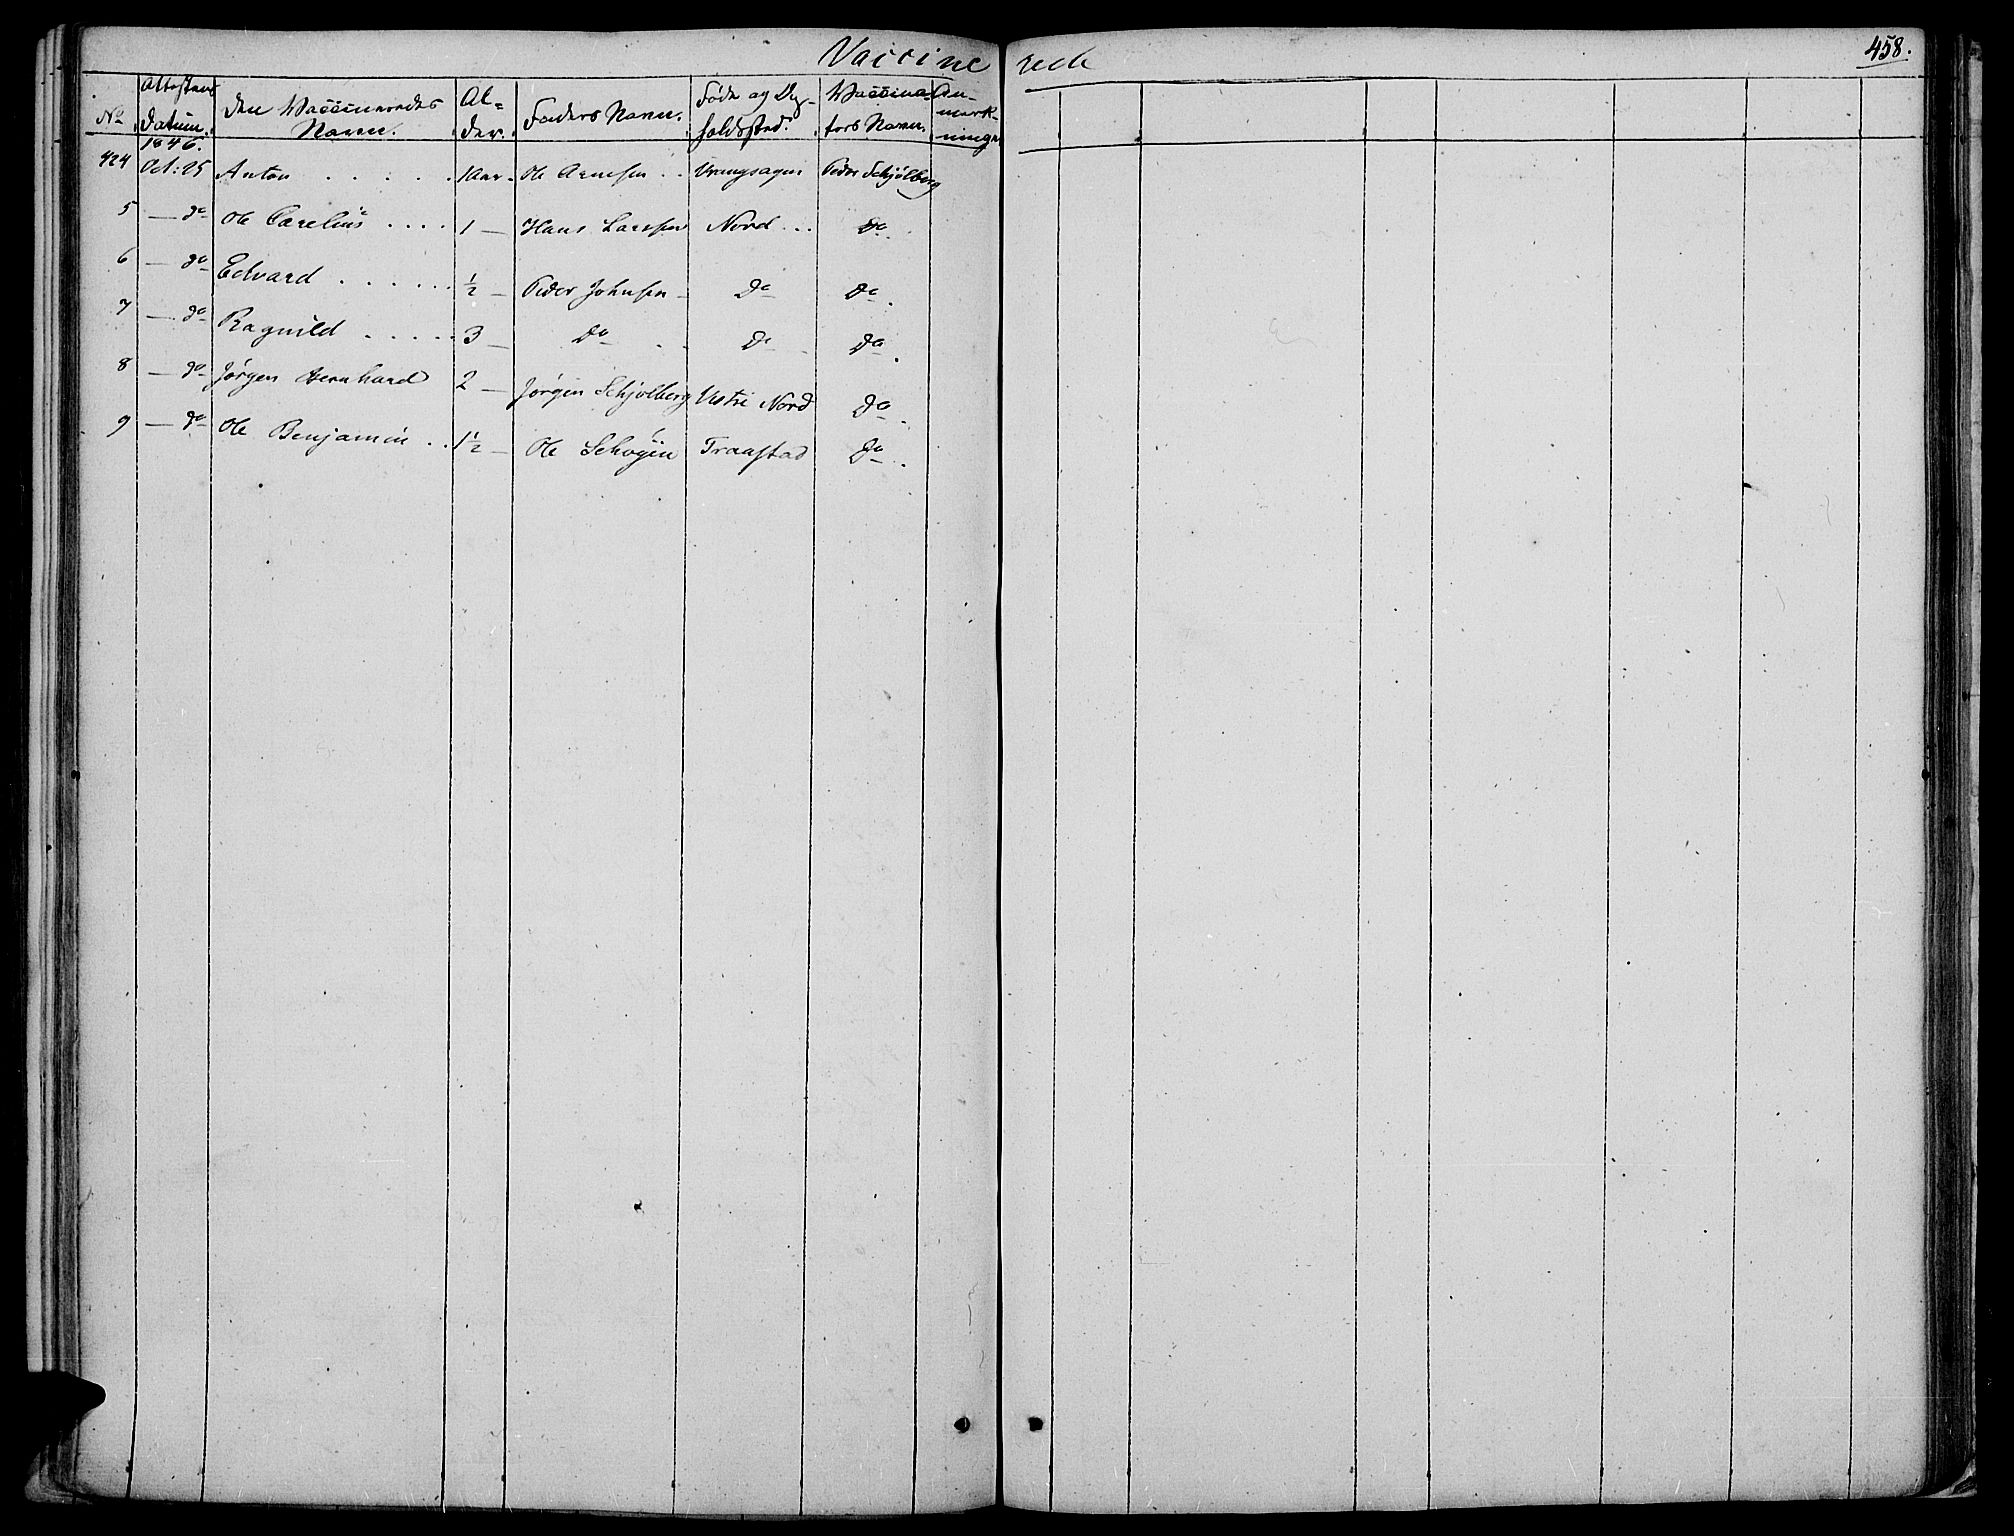 Vaccinerede
458.
No | Attestens Datum. | Den Vaccineredes Navn. | Al-der. | Faders Navn. | Føde og Op-holdssted. | Vaccina-tors Navn. | An-mærk-ninger
1846.
424 Oct: 25 Anton . . . . . 1 Aar. Ole Arnesen . . Vrangsagen Peder Schjølberg
5 — do Ole Carelius . . . . 1 — Hans Larssen Nord . . . Do.
6 — do Edvard . . . . . . ½ — Peder Johnsen — Do Do.
7 — do Ragnild . . . . . 3 — Do . . Do . Do.
8 — do Jørgen Bernhard 2 — Jørgen Schjølberg Vestre Nord Do.
9 — do Ole Benjamin . . 1½ — Ole Schøgen Traastad Do.